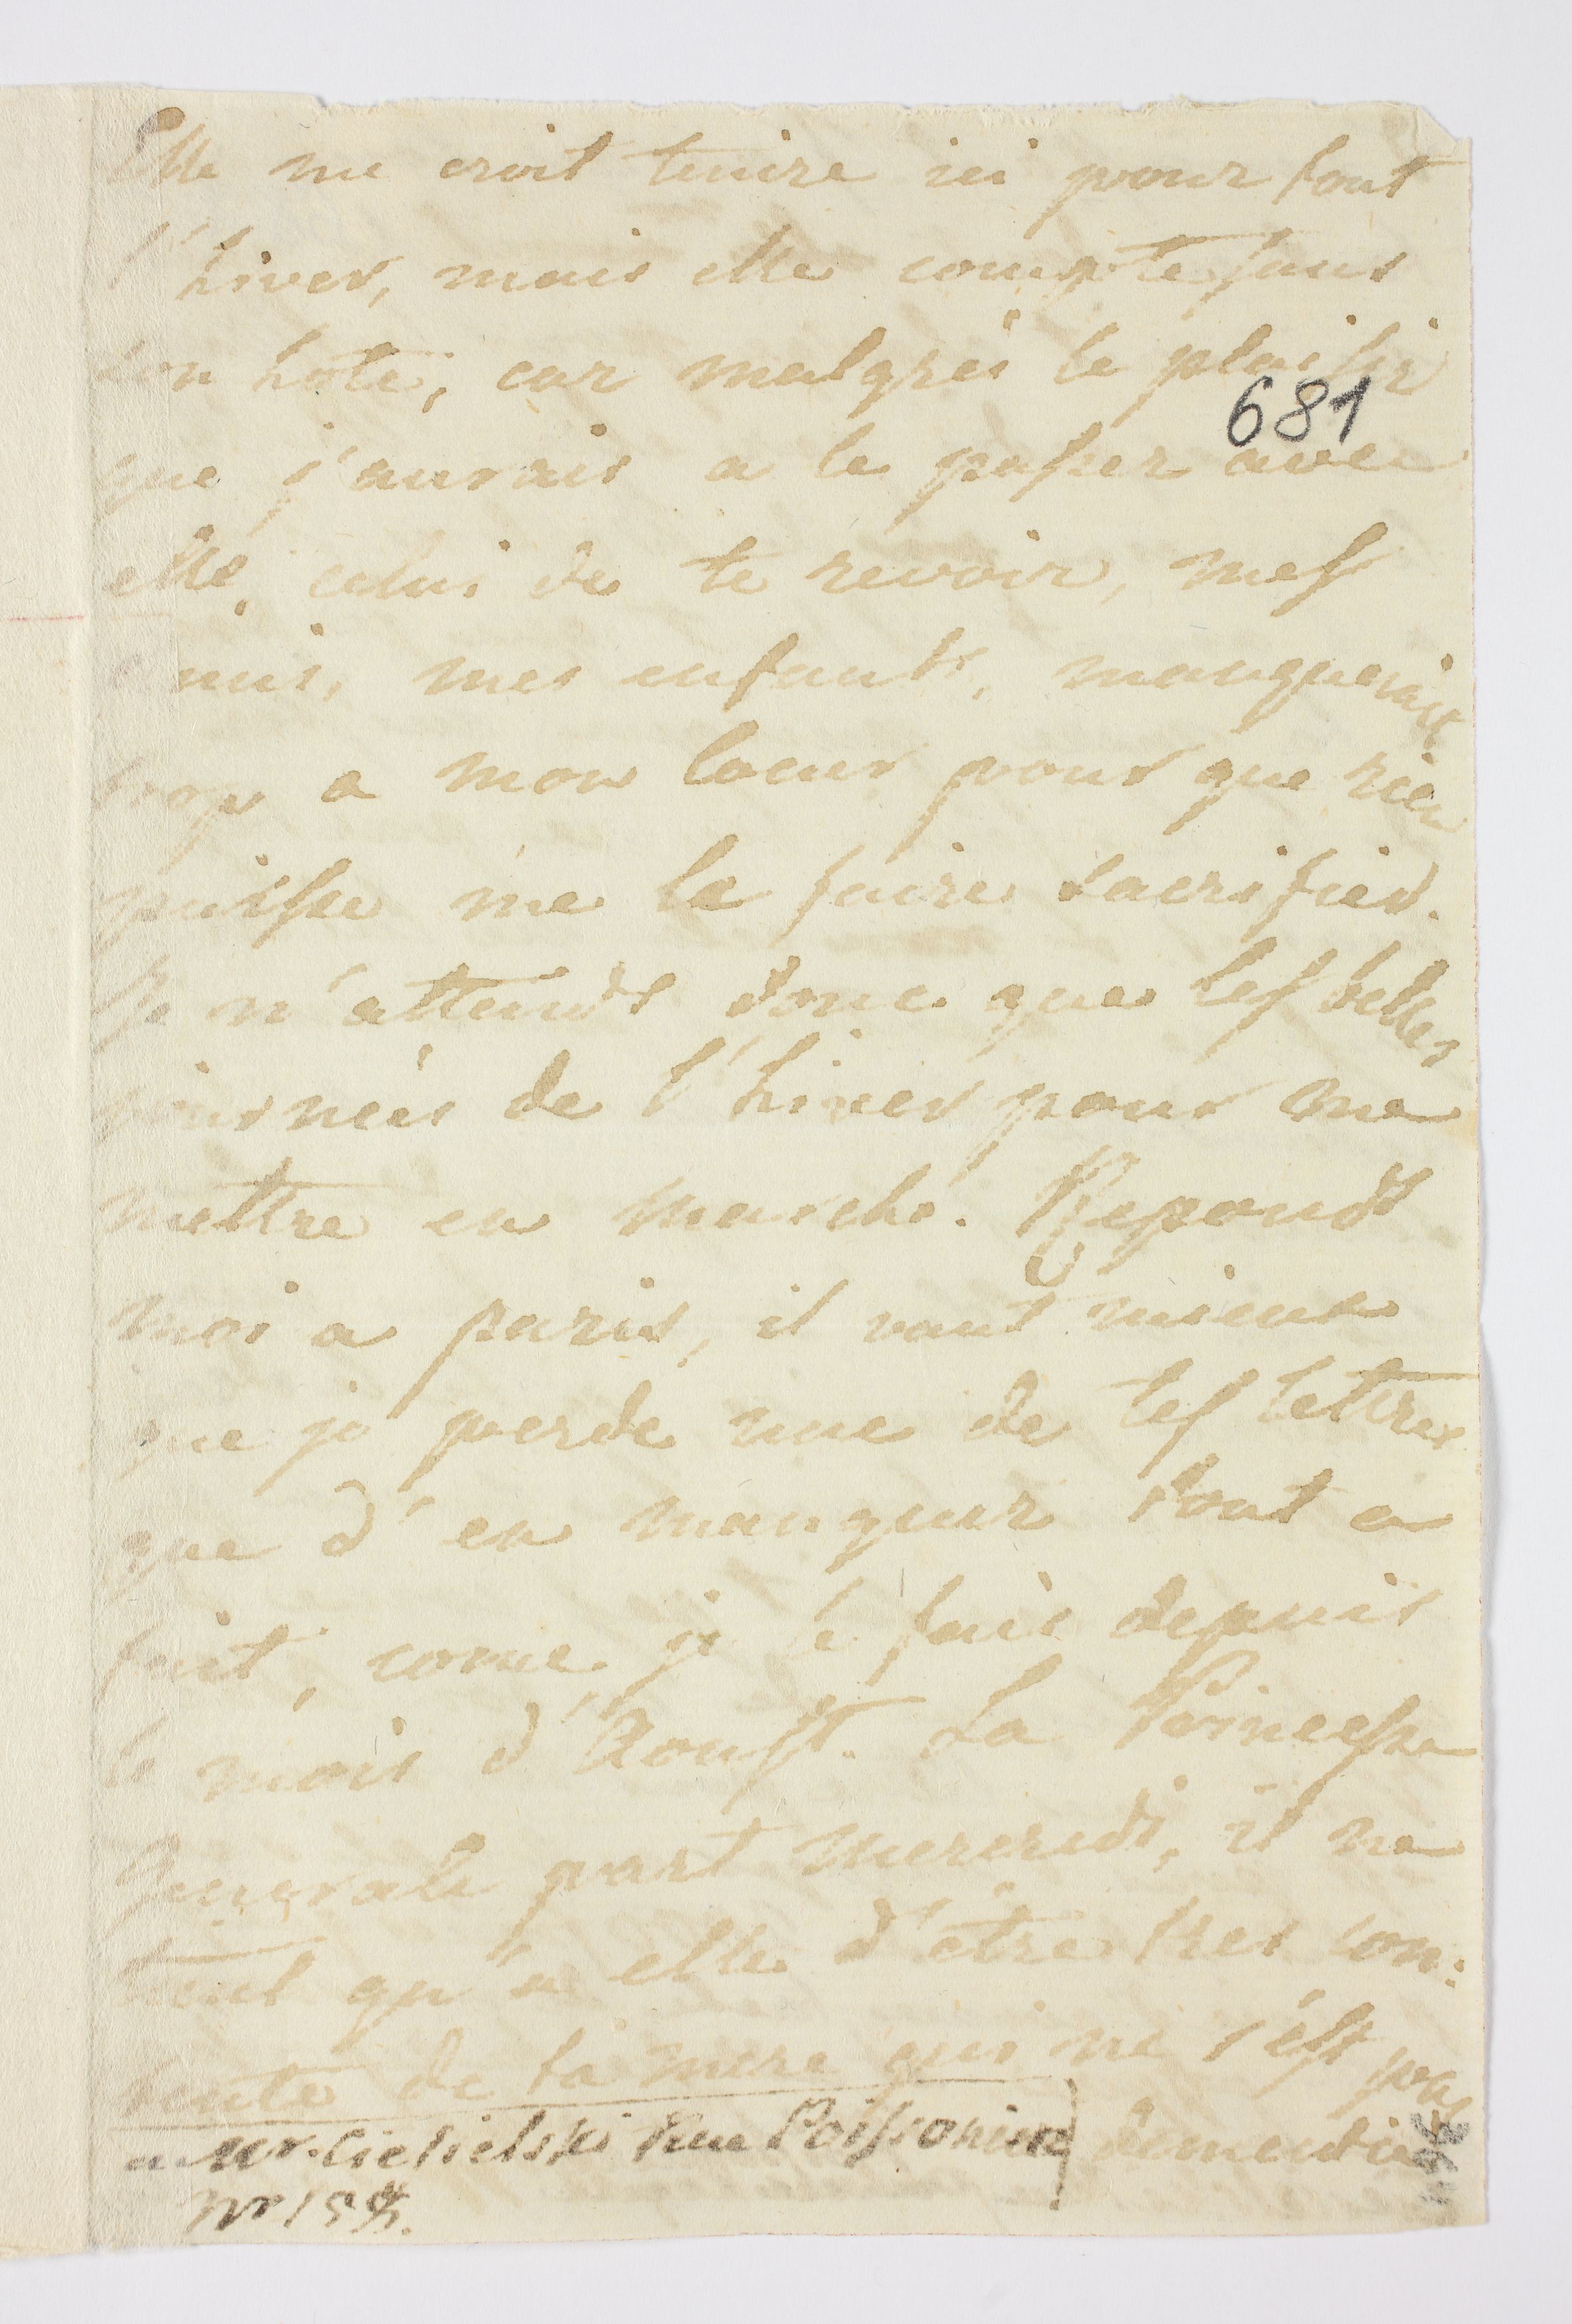 Elle me croit tenire ici pour tout
l'hiver, mais elle compte sans
son hote, car malgréi le plaisir
681
que j'aurais a le passer avec
elle, celui de te revoir, mes
amis, mes enfants, manquerait
trop a mon coeur pour que rien
puisse me le faire sacrifier.
Je n'attends donc que les belles
journéis de l'hiver pour me
mettre en marche. Reponds
moi a paris, il vaut mieux
que je perde une de tes lettres
que d'en manquer tout a
fait, come je le fais depuis
le mois d'Aoust. La Princesse
Generale part mercredi, il ne
tient qu'a elle d'être tres con:
tente de ta mere qui ne s'est pas
dementie
a Mr. Ciesielski Rue Poissonière
Nr